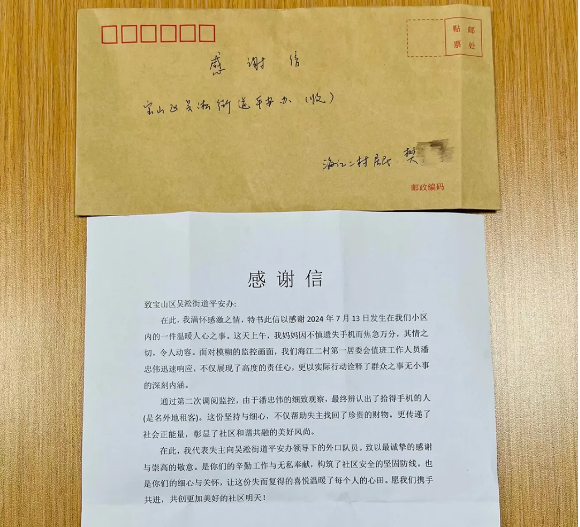 贴 邮
票 处
感 谢 信
宝山区吴淞街道平安办(收)
海江二村居民 樊
邮政编码
感 谢 信
致宝山区吴淞街道平安办:
在此，我满怀感激之情，特书此信以感谢 2024 年 7 月 13 日发生在我们小区
内的一件温暖人心之事。这天上午，我妈妈因不慎遗失手机而焦急万分，其情之
切，令人动容。面对模糊的监控画面，我们海江二村第一居委会值班工作人员潘
忠伟迅速响应，不仅展现了高度的责任心，更以实际行动诠释了群众之事无小事
的深刻内涵。
通过第二次调阅监控，由于潘忠伟的细致观察，最终辨认出了拾得手机的人
(是名外地租客)。这份坚持与细心，不仅帮助失主找回了珍贵的财物。更传递了
社会正能量，彰显了社区和谐共融的美好风尚。
在此，我代表失主向吴淞街道平安办领导下的外口队员。致以最诚挚的感谢
与崇高的敬意。是你们的辛勤工作与无私奉献，构筑了社区安全的坚固防线。也
是你们的细心与关怀，让这份失而复得的喜悦温暖了每个人的心田。愿我们携手
共进，共创更加美好的社区明天！